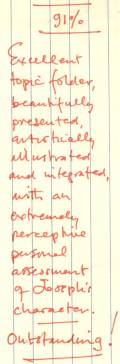 91%
Excellent
topic folder,
beautifully
presented,
artistically
illustrated
and integrated,
with an
extremely
perceptive
personal
assessment
of Joseph's
character.
Outstanding!